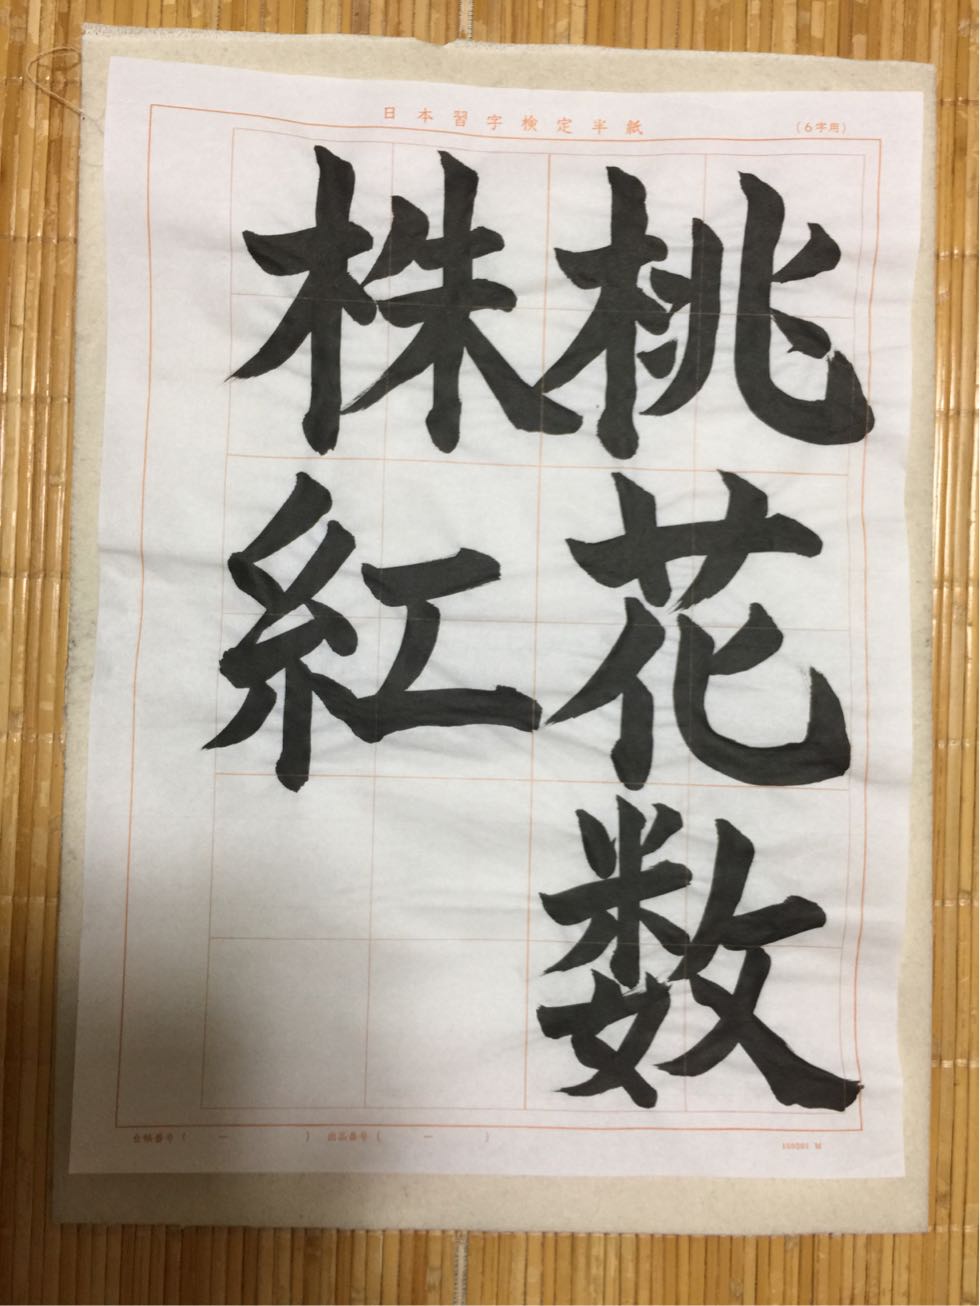 日本習字検定半紙
(6字用)
桃花数
株紅
会帳番号( ー )
出品番号( ー )